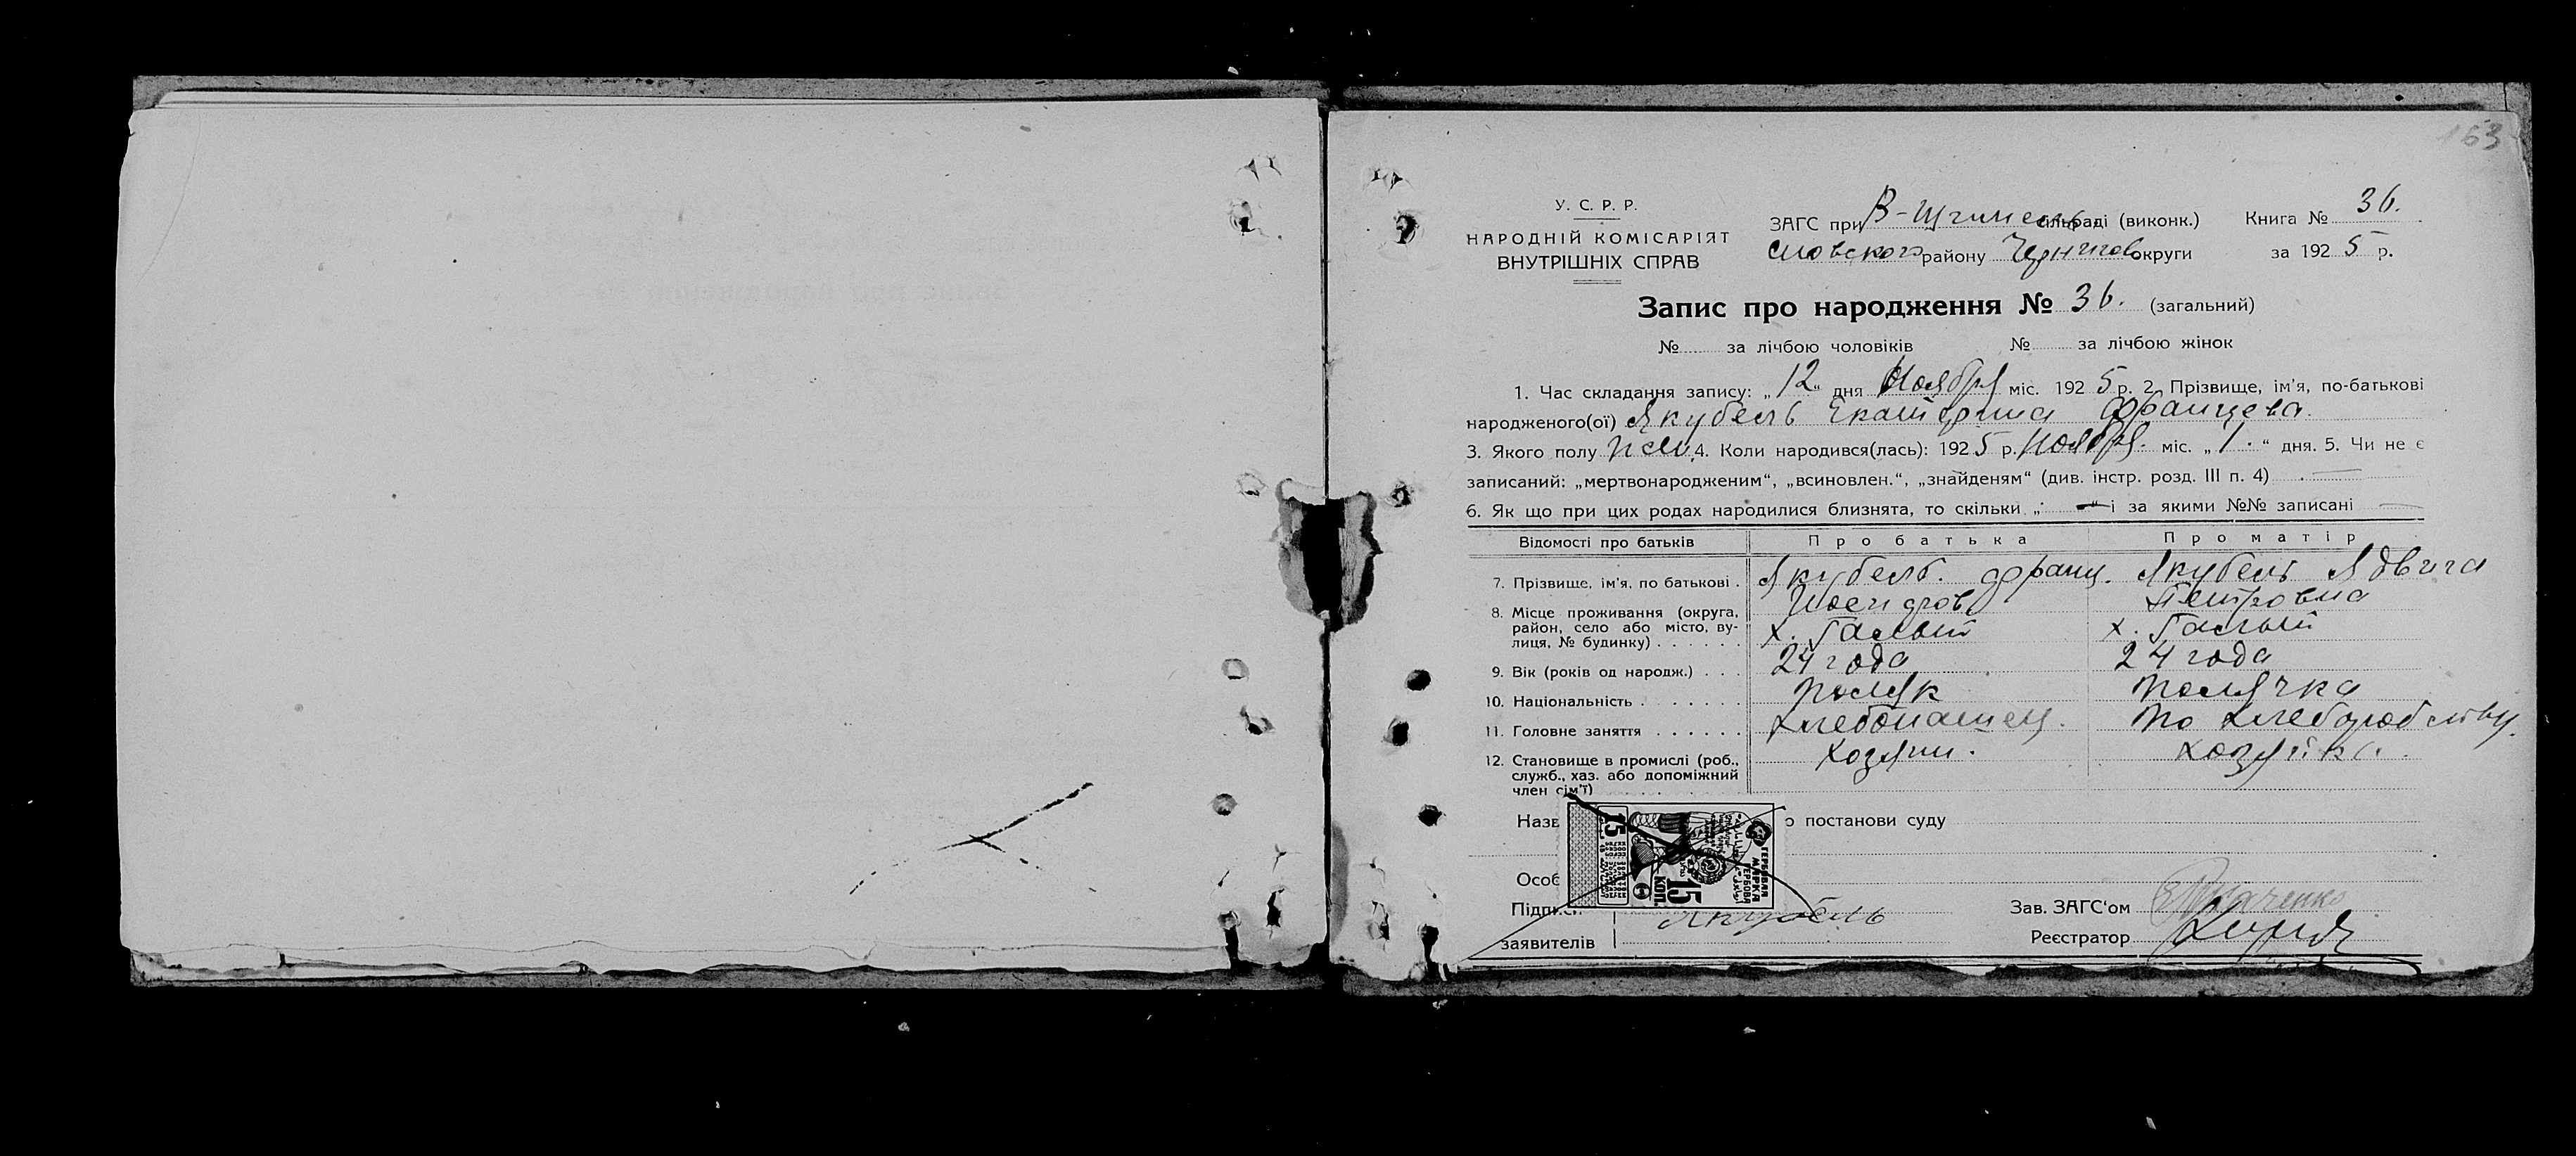 163
У. С. Р. Р.
НАРОДНІЙ КОМІСАРІЯТ
ВНУТРІШНІХ СПРАВ
ЗАГС при сільраді (виконк.) Книга № 36.
району Чернигов округи за 1925 р.
Запис про народження № 36. (загальний)
№ за лічбою чоловіків № за лічбою жінок
1. Час складання запису: „12“ дня Ноября міс. 1925 р. 2. Прізвище, ім'я, по-батькові
народженого(ої) Якубель Екатерина Францева.
3. Якого полу жен. 4. Коли народився(лась): 1925 р. Ноября. міс. „1.“ дня. 5. Чи не є
записаний: „мертвонародженим“, „всиновлен.“, „знайденям“ (див. інстр. розд. III п. 4) —
6. Як що при цих родах народилися близнята, то скільки „—“ і за якими №№ записані —
Відомості про батьків Про батька Про матір
7. Прізвище, ім'я, по батькові . Якубель. Франц. Якубель Ядвига
Иосифов Петровна
8. Місце проживання (округа,
район, село або місто, ву-
лиця, № будинку) . . . . . . х. Галый х. Галый
9. Вік (років од народж.) . . . 24 года 24 года
10. Національність . . . . . . . поляк полячка
11. Головне заняття . . . . . . хлебопашец. по хлеборобству.
12. Становище в промислі (роб.,
служб., хаз. або допоміжний
член сім'ї) хозяин. хозяйка.
Назв постанови суду
Особ
ГЕРБОВАЯ
МАРКА
ГЕРБОВА
15
КОП.
15
Підписи Якубель Зав. ЗАГС'ом Ткаченко
заявителів Реєстратор